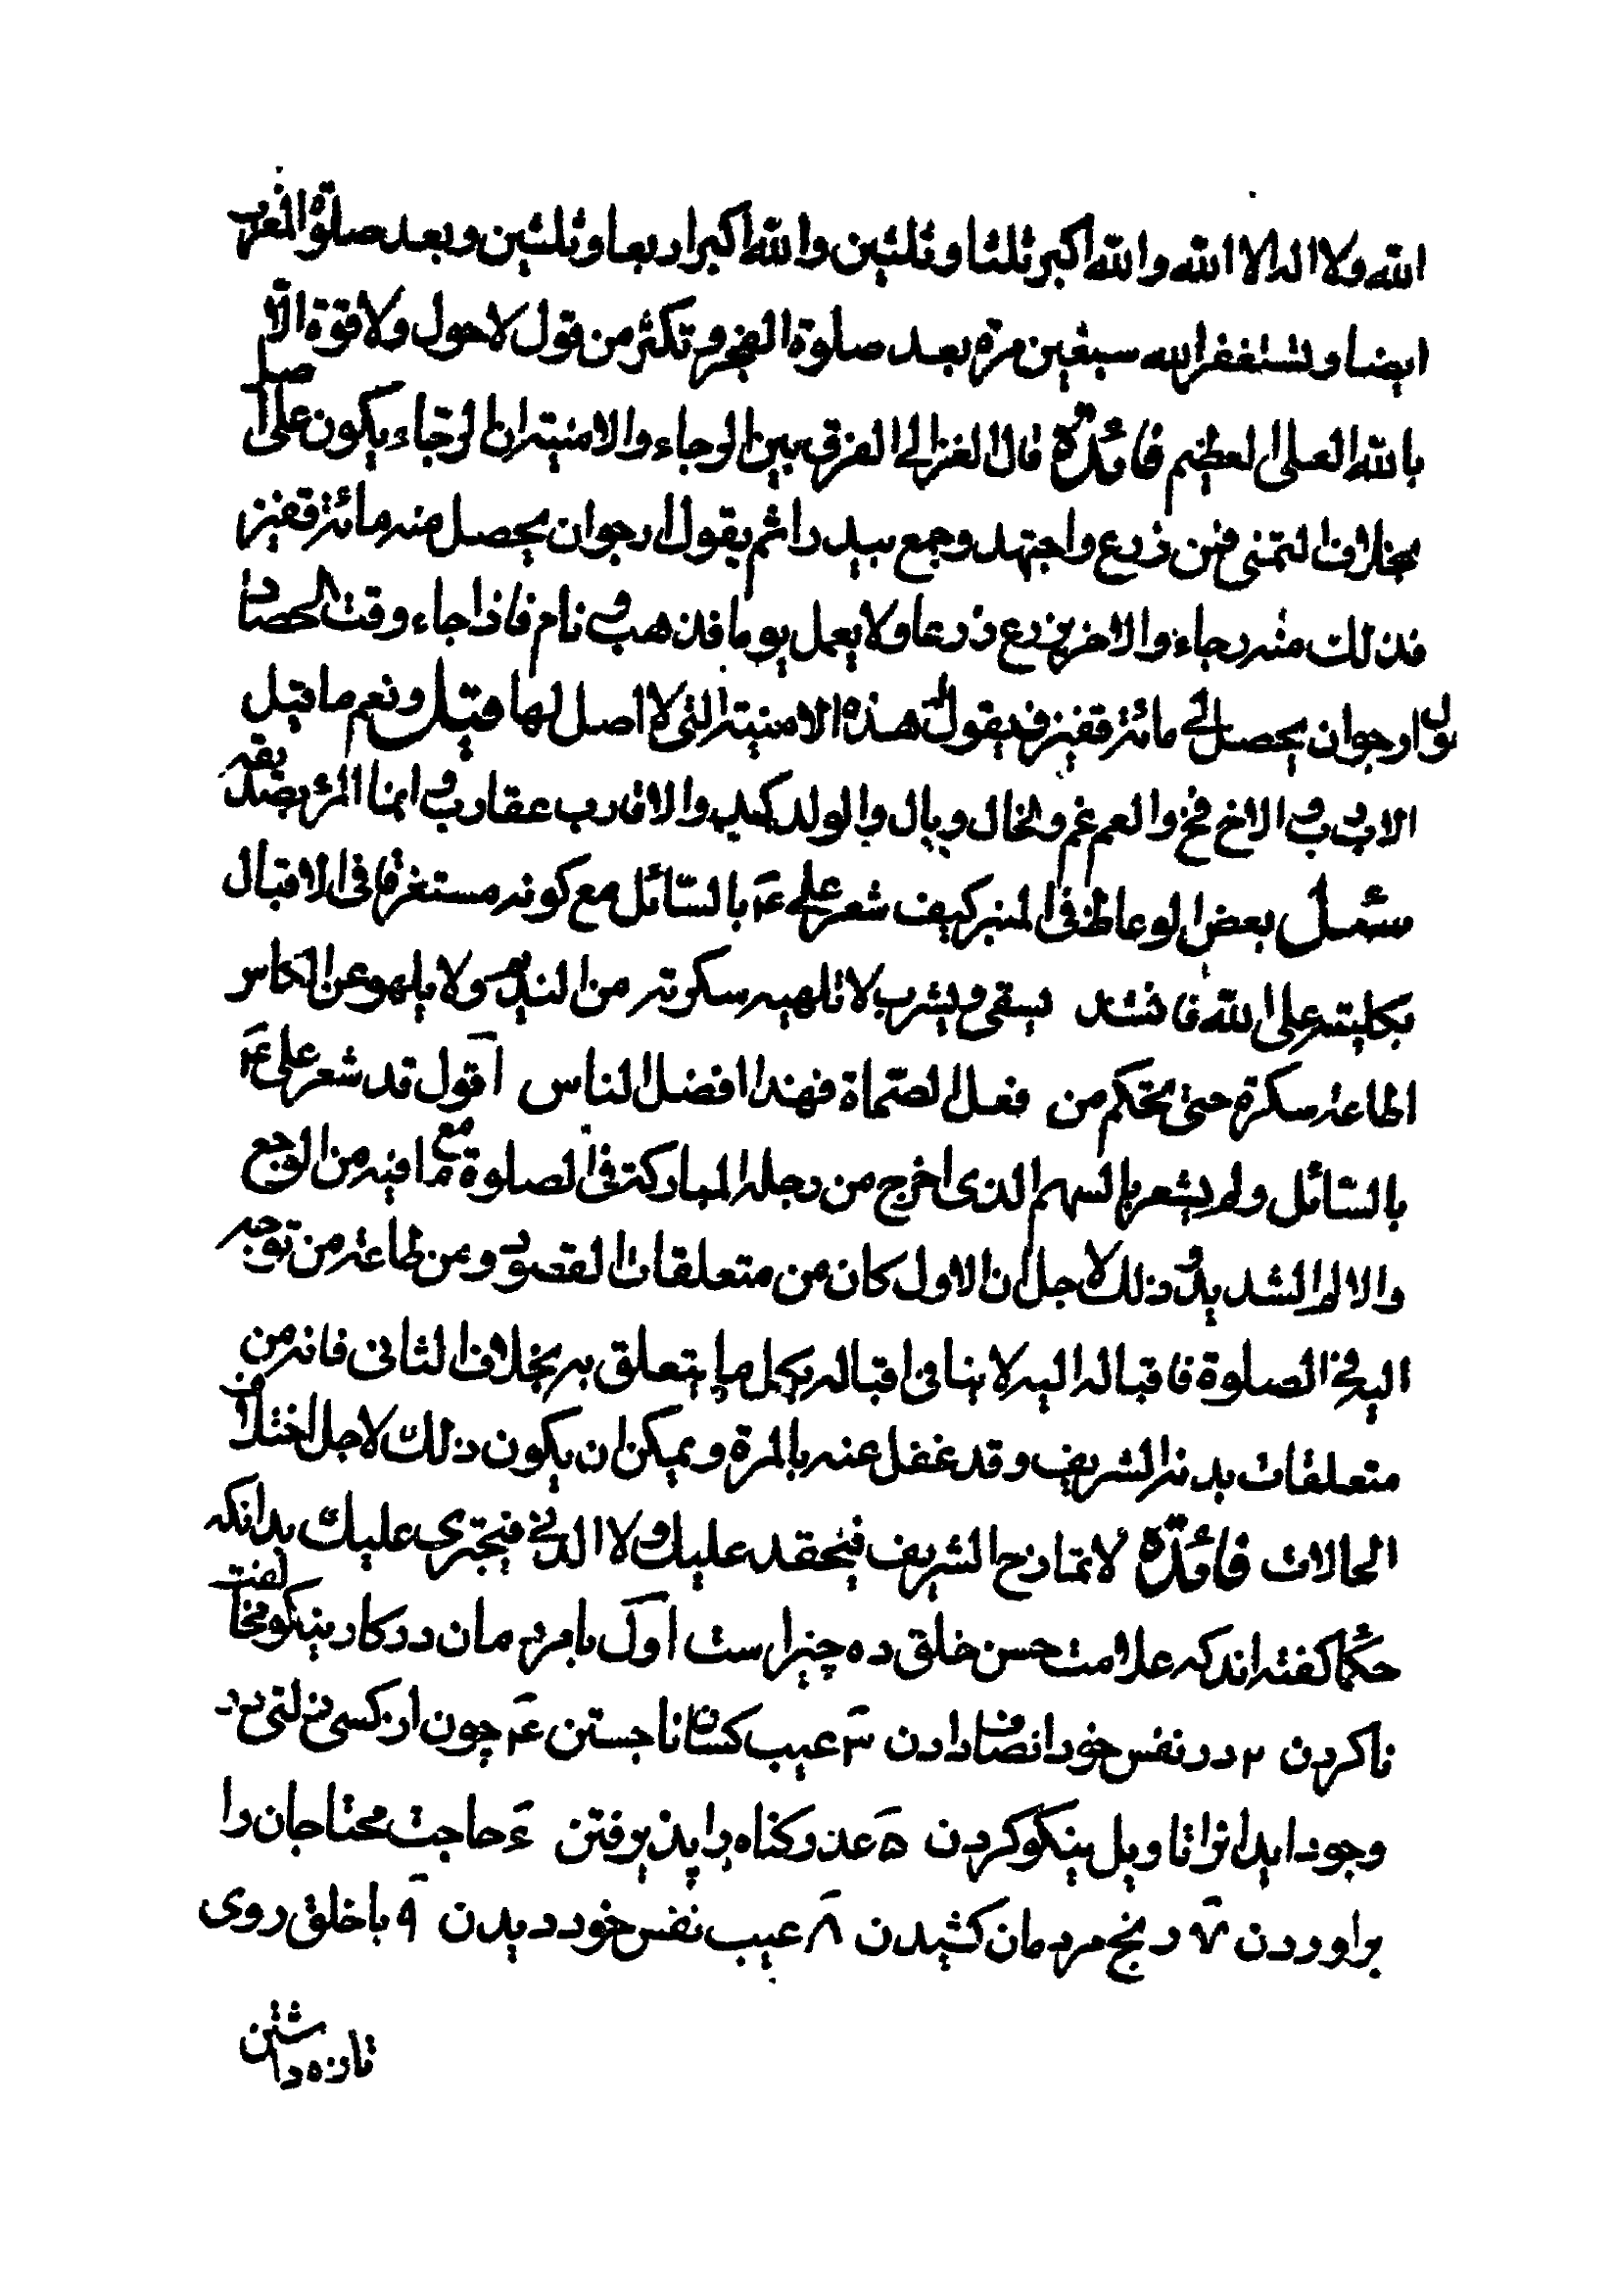 الله ولا اله الا الله والله اكبر ثلثا وثلثين والله اكبر اربعا وثلثين وبعد صلوة المغرب
ايضا وتستغفر الله سبعين مرة بعد صلوة الفجر وتكثر من قول لا حول ولا قوة الا
بالله العلى العظيم فائدة قال الغزالى الفرق بين الرجاء والامنية ان الرجاء يكون على اصل
بخلاف التمنى فمن زرع واجتهد وجمع بيدرا ثم يقول ارجوان يحصل منه مائة قفيز
فذلك منه رجاء والاخر يزرع زرعا ولا يعمل يوما فذهب ونام فاذا جاء وقت الحصاد
يقول ارجوان يحصل لى مائة قفيز فيقول هذه الامنية التى لا اصل لها قيل ونعم ما قيل
الاب رب والاخ فخ والعم غم والخال وبال والولد كمد والاقارب عقارب وانما المرء بصديقه
سئل بعض الوعاظ فى المنبر كيف شعر على ع بالسائل مع كونه مستغرقا فى الاقبال
بكليته على الله فانشد يسقى ويشرب لا تلهيه سكرته من النديم ولا يلهو عن الكاس
اطاعه سكره حتى تحكم من فعل الصحاة فهذا افضل الناس اقول قد شعر على ع
بالسائل ولم يشعر بالسهم الذى اخرج من رجله المباركة فى الصلوة مع ما فيه من الوجع
والالم الشديد وذلك لاجل ان الاول كان من متعلقات المقصود ومن طاعة من توجه
اليه فى الصلوة فاقباله اليه لا ينافى اقباله بكل ما يتعلق به بخلاف الثانى فانه من
متعلقات بدنه الشريف وقد غفل عنه بالمرة ويمكن ان يكون ذلك لاجل اختلاف
الحالات فائدة لا تمازح الشريف فيحقد عليك ولا الدنى فيجترى عليك بدانكه
حكما كفته اند كه علامت حسن خلق ده چيز است اول با مردمان در كار نيكو مخالفت
ناكردن ٢ در نفس خود انصاف دادن ٣ عيب كسان ناجستن ۴ چون از كسى زلتى در
وجود ايد انرا تاويل نيكو كردن ۵ عذر كناه را پذيرفتن ۶ حاجت محتاجان را
براوردن ٧ رنج مردمان كشيدن ٨ عيب نفس خود ديدن ٩ با خلق روى
تازه داشتن